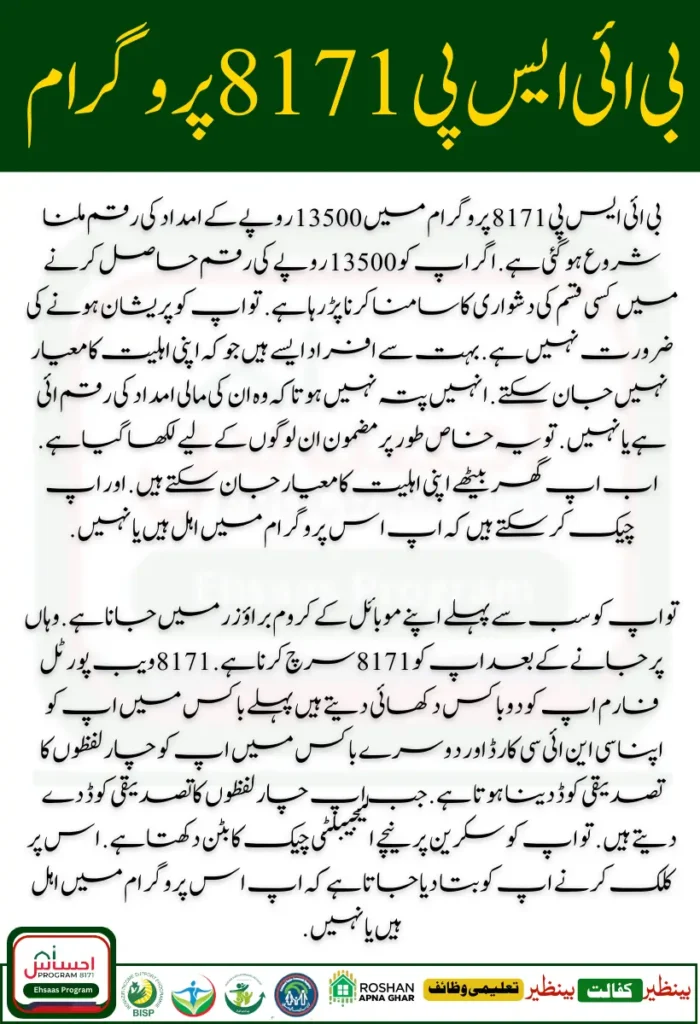 بی ائی ایس پی 8171 پروگرام
بی ائی ایس پی 8171 پروگرام میں 13500 روپے کے امداد کی رقم ملنا
شروع ہو گئی ہے. اگر اپ کو 13500 روپے کی رقم حاصل کرنے
میں کسی قسم کی دشواری کا سامنا کرنا پڑ رہا ہے. تو اپ کو پریشان ہونے کی
ضرورت نہیں ہے. بہت سے افراد ایسے ہیں جو کہ اپنی اہلیت کا معیار
نہیں جان سکتے. انہیں پتہ نہیں ہوتا کہ وہ ان کی مالی امداد کی رقم ائی
ہے یا نہیں. تو یہ خاص طور پر مضمون ان لوگوں کے لیے لکھا گیا ہے.
اب اپ گھر بیٹھے اپنی اہلیت کا معیار جان سکتے ہیں. اور اپ
چیک کر سکتے ہیں کہ اپ اس پروگرام میں اہل ہیں یا نہیں.
Ehsaas Program
تو اپ کو سب سے پہلے اپنے موبائل کے کروم براؤزر میں جانا ہے. وہاں
پر جانے کے بعد اپ کو 8171 سرچ کرنا ہے. 8171 ویب پورٹل
فارم اپ کو دو باکس دکھائی دیتے ہیں پہلے باکس میں اپ کو
اپنا سی این ائی سی کارڈ اور دوسرے باکس میں اپ کو چار لفظوں کا
تصدیقی کوڈ دینا ہوتا ہے. جب اپ چار لفظوں کا تصدیقی کوڈ دے
دیتے ہیں. تو اپ کو سکرین پر نیچے ایلیجیبلٹی چیک کا بٹن دکھتا ہے. اس پر
کلک کرنے اپ کو بتا دیا جاتا ہے کہ اپ اس پروگرام میں اہل
ہیں یا نہیں.
احساس
PROGRAM 8171
Ehsaas Program
BISP
ROSHAN
APNA GHAR
بینظیر تعلیمی وظائف
بینظیر کفالت